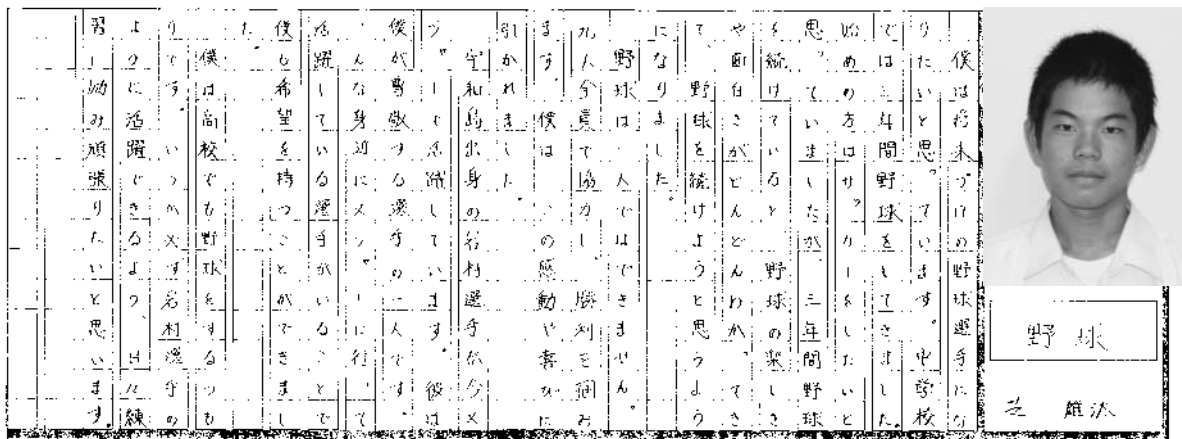 野球
雄汰
僕は将来プロの野球選手にな
りたいと思っています。中学校
では三年間野球をしてきました。
始めの方はサッカーをしたいと
思っていましたが、三年間野球
を続けていると、野球の楽しさ
や面白さがどんどんわかってき
て、野球を続けようと思うよう
になりました。
野球は一人ではできません。
九人全員で協力し、勝利を掴み
ます。僕は、その感動や喜びに
引かれました。
宇和島出身の岩村選手が今メ
ジャーで活躍しています。彼は
僕が尊敬する選手の一人です。
こんな身近にメジャーに行って
活躍している選手がいることで
僕も希望を持つことができまし
た。
僕は高校でも野球をするつも
りです。いつか必ず岩村選手の
ように活躍できるよう、日々練
習に励み頑張りたいと思います。